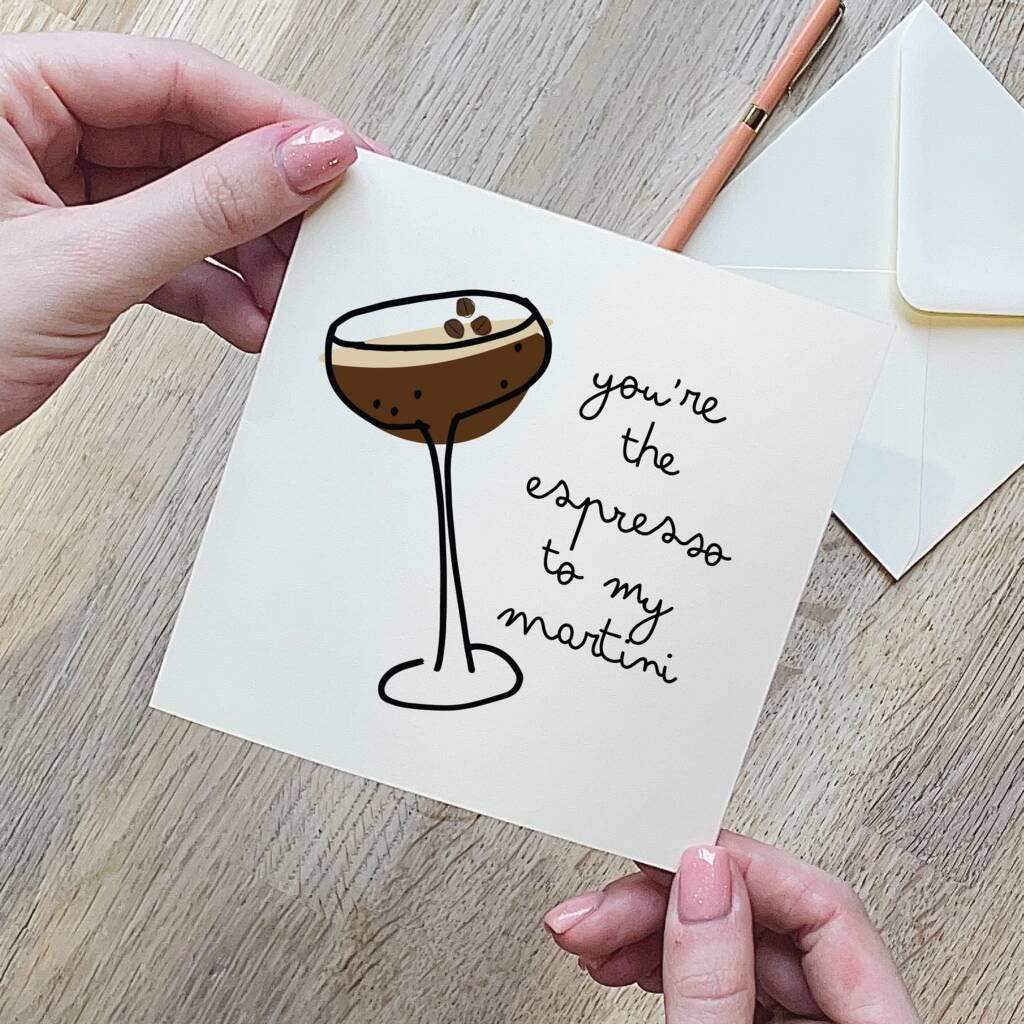 you're
the
espresso
to my
martini